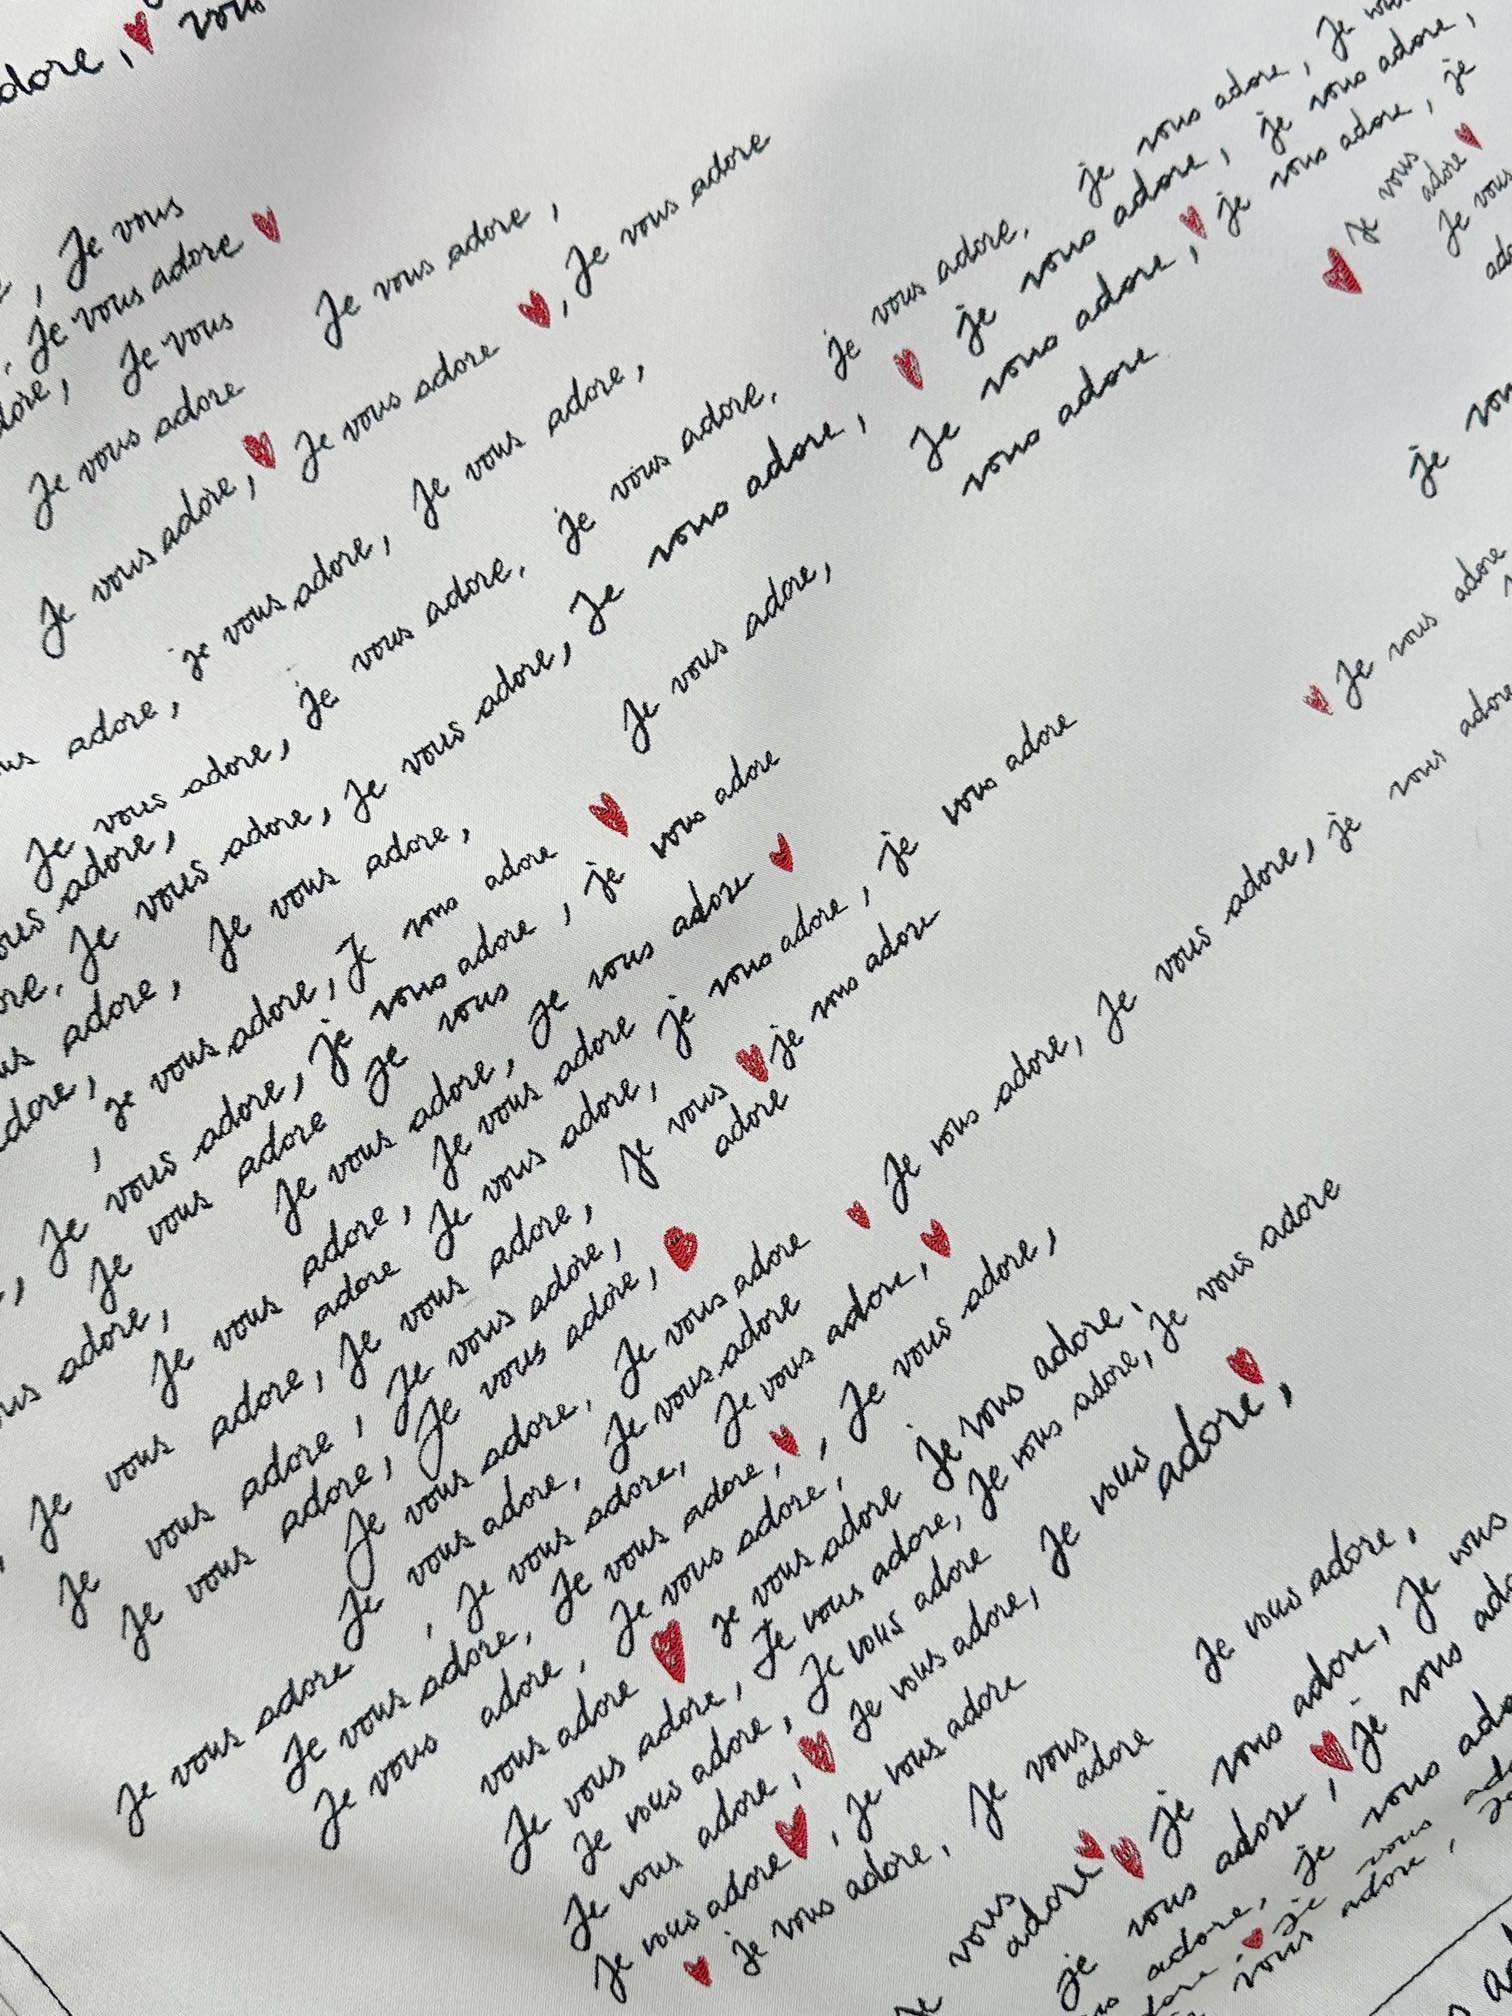 adore, vous
, Je vous
, Je vous adore
adore, Je vous
Je vous adore
Je vous adore,
Je vous adore, Je vous adore, Je vous adore
adore, je vous adore, Je vous adore,
Je vous adore, je vous adore, je vous adore, je vous adore, je vous adore, Je
vous adore,
Je vous adore, Je vous adore, Je vous adore, je vous adore, je vous adore,
Je vous adore, je vous adore, je
vous adore
Je vous
adore
Je vous
je
adore, Je vous adore,
Je vous adore,
adore,
, Je vous adore, Je vous adore
Je vous adore, je vous adore, je vous adore
Je vous adore Je vous
vous adore,
Je vous adore, Je vous adore
Je vous adore, Je vous adore je vous adore, je vous adore
adore Je vous adore,
Je vous adore, Je vous adore, Je vous je vous adore
adore
Je vous adore, Je vous adore,
Je vous adore, Je vous adore,
Je vous adore, Je vous adore Je vous adore, Je vous adore, je vous adore
Je vous adore
Je vous adore, Je vous adore
Je vous adore, Je vous adore, Je vous adore,
Je vous adore, Je vous adore, Je vous adore,
Je vous adore, Je vous adore,
vous adore je vous adore Je vous adore,
Je vous adore, Je vous adore, Je vous adore, Je vous adore
Je vous adore, Je vous adore
Je vous adore, Je vous adore, Je vous
adore,
Je vous adore, Je vous adore
je vous adore, Je vous
adore
Je vous adore,
vous
adore je vous adore, Je vous
je vous adore, Je vous
adore, je vous
adore, je vous
vous adore,